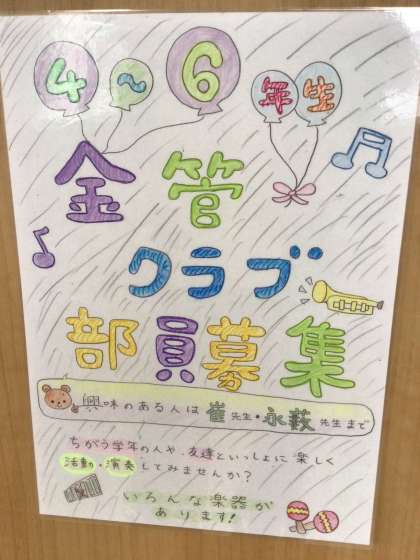 4～6年生
金管
クラブ
部員募集
興味のある人は崔先生・永薮先生まで
ちがう学年の人や、友達といっしょに楽しく
活動・演奏してみませんか？
いろんな楽器が
あります!